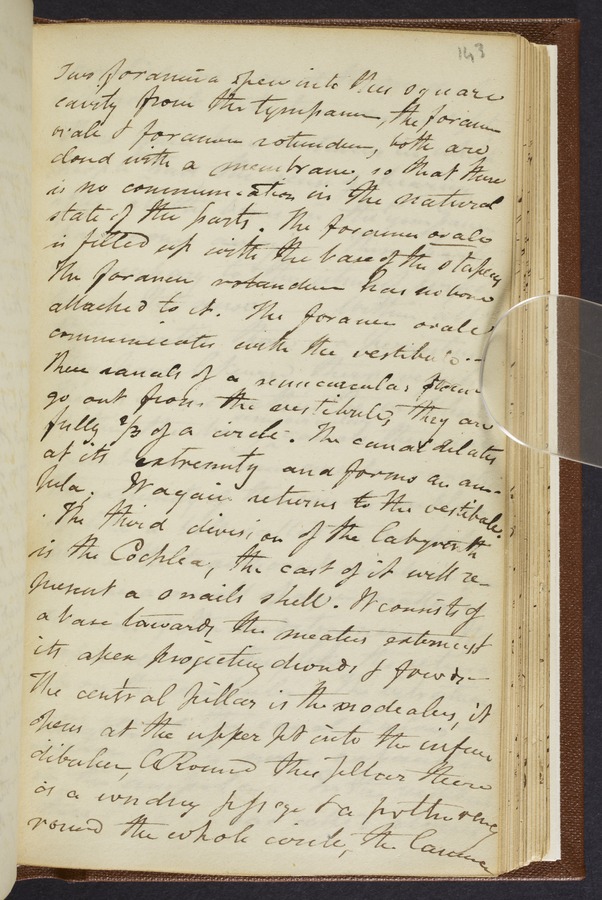 143
Two foramina open into this square
cavity from the tympanum, the foramen
ovale & foramen rotundum, both are
closed with a membrane, so that there
is no communication in the natural
state of the parts. The foramen ovale
is filled up with the base of the stapes
The foramen rotundum has no bone
attached to it. The foramen ovale
communicates with the vestibule --
Three canals of a semicircular form
go out from the vestibule, they are
fully 2/3 of a circle. The canal dilates
at its extremity and forms an am-
pula. It again returns to the vestibule.
. The third division of the labyrinth
is the Cochlea, the cast of it will re-
present a snails shell. It consists of
a base towards the meatus externus &
its apex projecting &
The central pillar is the modealus, it
opens at the upper pt into the infun
dibulum, Round this pillar there
is a winding passage & a
round the whole circle, the Lamina